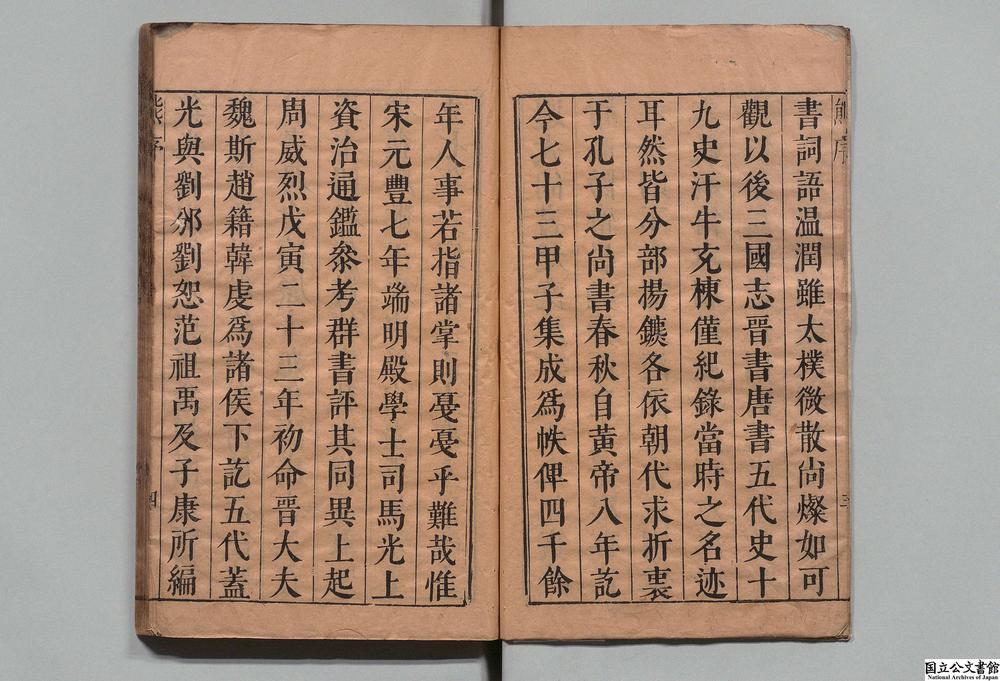 熊序
書詞語温潤雖太樸微散尙燦如可
觀以後三國志晉書唐書五代史十
九史汗牛充棟僅紀錄當時之名迹
耳然皆分部揚鑣各依朝代求折衷
于孔子之尙書春秋自黃帝八年訖
今七十三甲子集成爲帙俾四千餘
三
年人事若指諸掌則戞戞乎難哉惟
宋元豐七年端明殿學士司馬光上
資治通鑑叅考群書評其同異上起
周威烈戊寅二十三年初命晉大夫
魏斯趙籍韓虔爲諸侯下訖五代蓋
光與劉邠劉恕范祖禹及子康所編
熊序
四
国立公文書館
National Archives of Japan